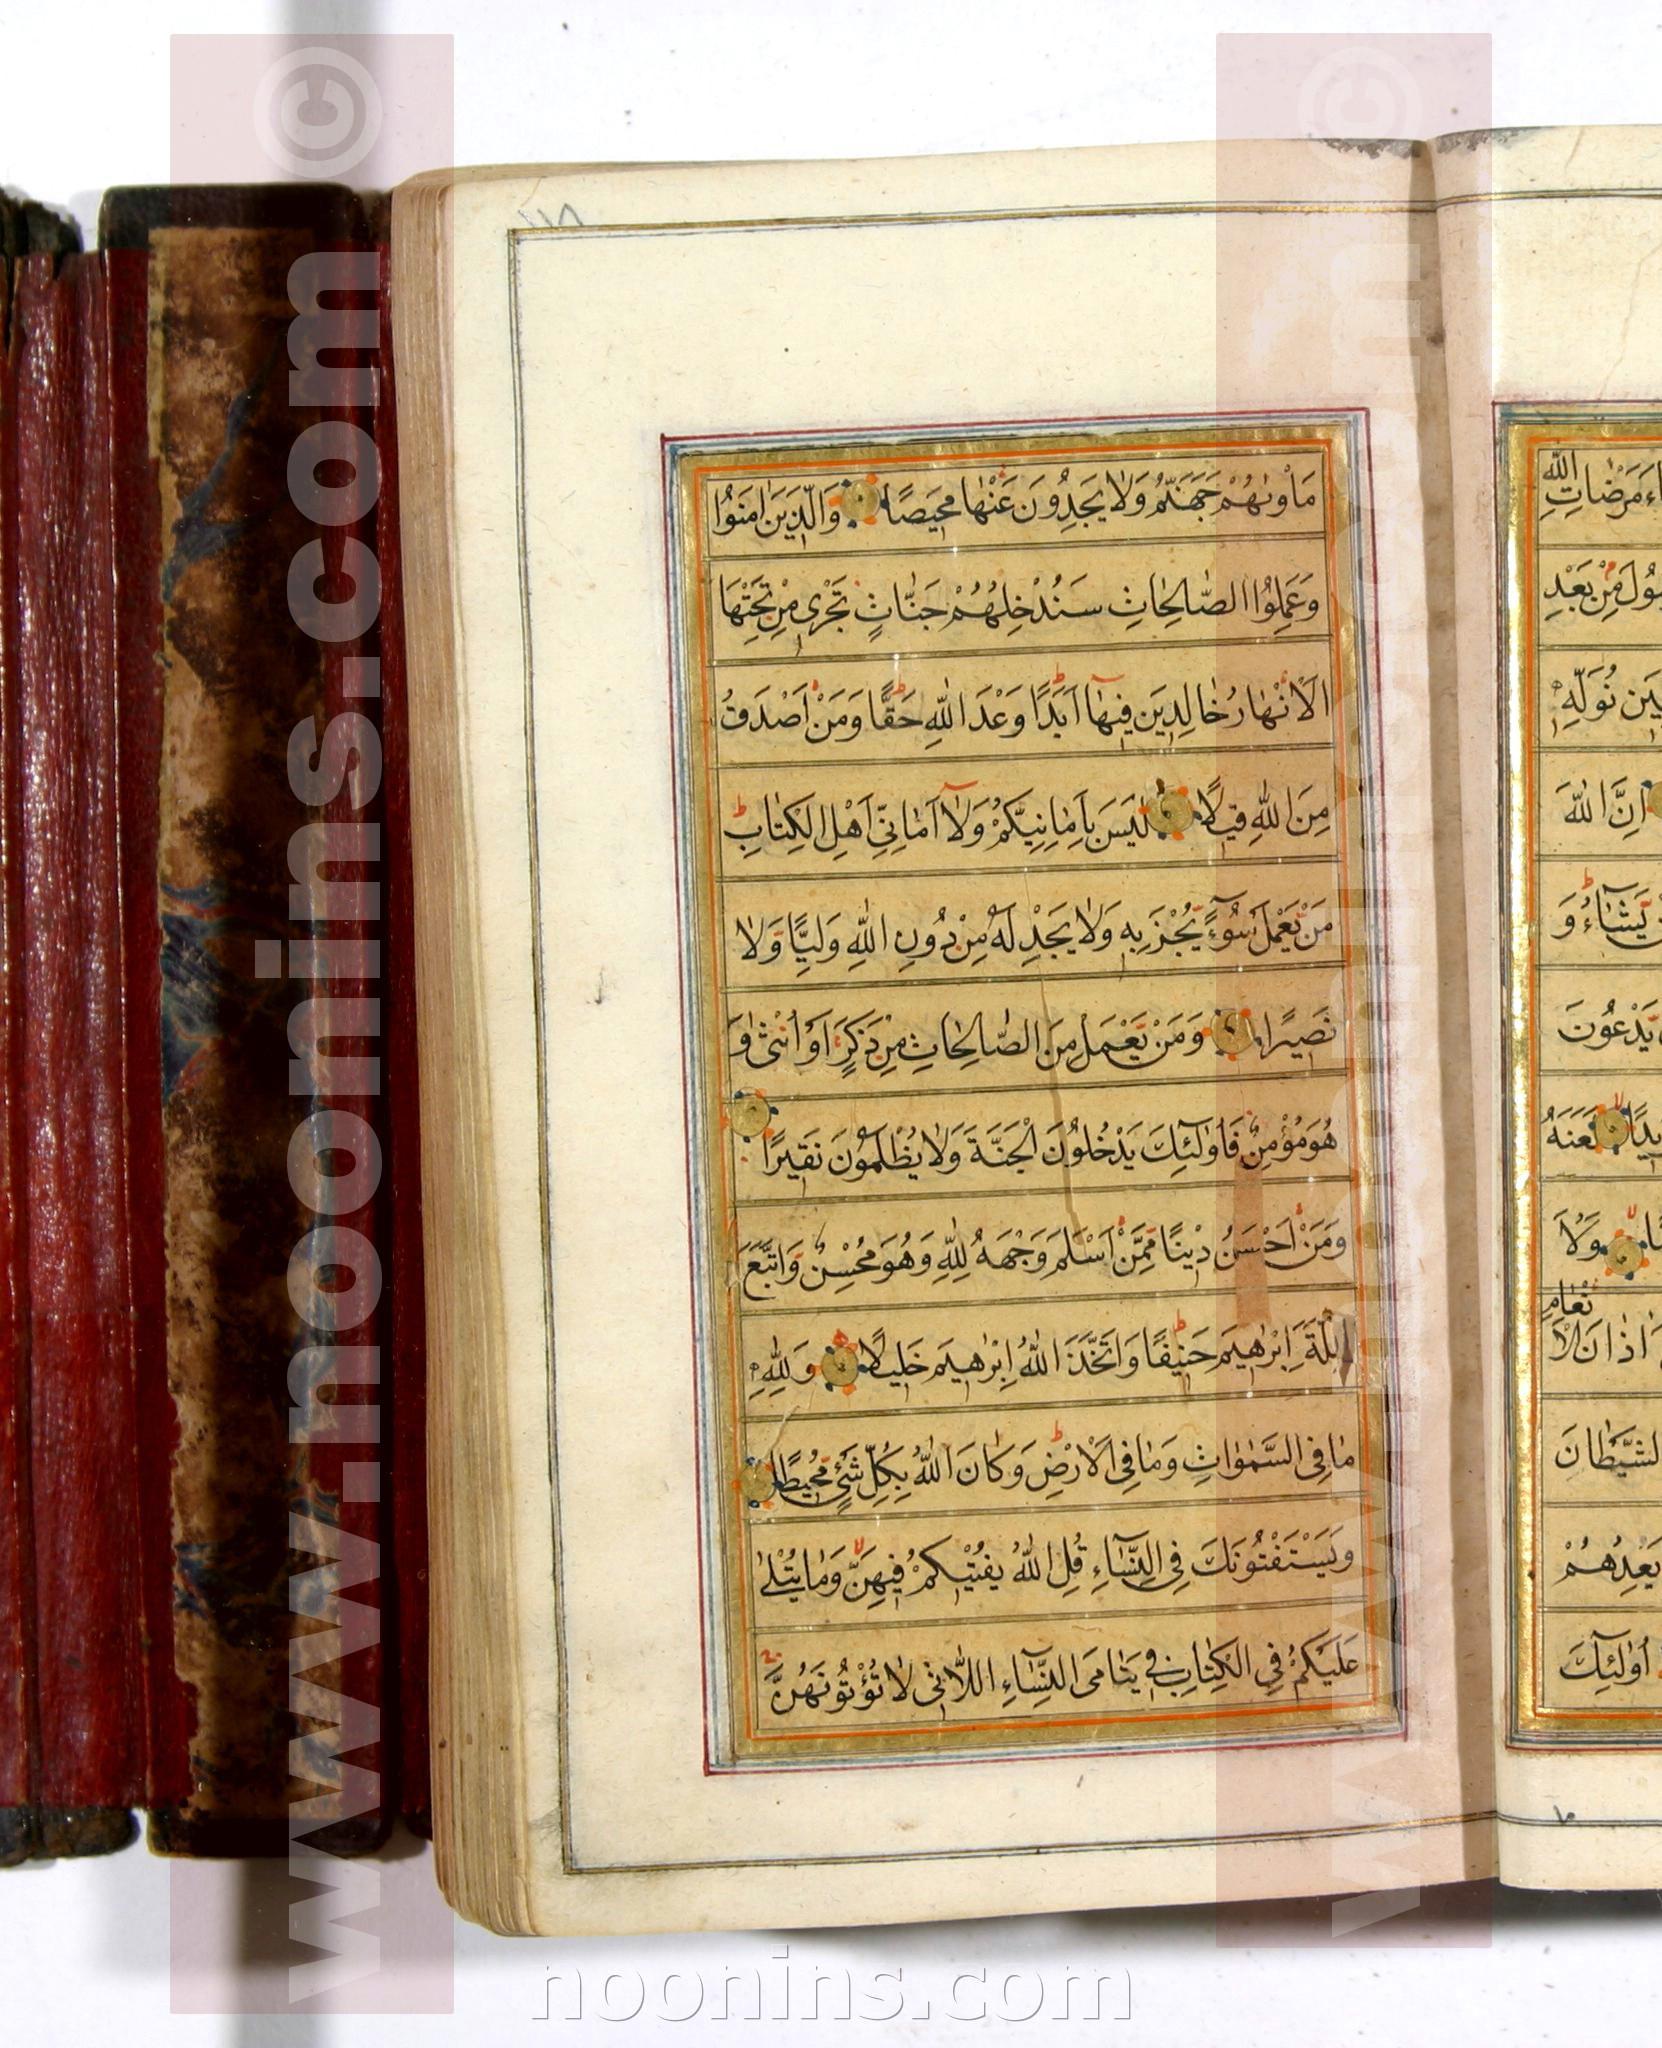 مَأْوٰىهُمْ جَهَنَّمُ وَلَا يَجِدُونَ عَنْهَا مَحِيصًا وَالَّذِينَ اٰمَنُوا
وَعَمِلُوا الصَّالِحَاتِ سَنُدْخِلُهُمْ جَنَّاتٍ تَجْرِى مِنْ تَحْتِهَا
الْاَنْهَارُ خَالِدِينَ فِيهَا اَبَدًا وَعْدَ اللّٰهِ حَقًّا وَمَنْ اَصْدَقُ
مِنَ اللّٰهِ قِيلًا لَيْسَ بِاَمَانِيِّكُمْ وَلَا اَمَانِىِّ اَهْلِ الْكِتَابِ
مَنْ يَعْمَلْ سُوٓءًا يُجْزَ بِهِ وَلَا يَجِدْ لَهُ مِنْ دُونِ اللّٰهِ وَلِيًّا وَلَا
نَصِيرًا وَمَنْ يَعْمَلْ مِنَ الصَّالِحَاتِ مِنْ ذَكَرٍ اَوْ اُنْثٰى وَ
هُوَ مُؤْمِنٌ فَاُولٰئِكَ يَدْخُلُونَ الْجَنَّةَ وَلَا يُظْلَمُونَ نَقِيرًا
وَمَنْ اَحْسَنُ دِينًا مِمَّنْ اَسْلَمَ وَجْهَهُ لِلّٰهِ وَهُوَ مُحْسِنٌ وَاتَّبَعَ
مِلَّةَ اِبْرٰهِيمَ حَنِيفًا وَاتَّخَذَ اللّٰهُ اِبْرٰهِيمَ خَلِيلًا وَلِلّٰهِ
مَا فِى السَّمٰوَاتِ وَمَا فِى الْاَرْضِ وَكَانَ اللّٰهُ بِكُلِّ شَىْءٍ مُحِيطًا
وَيَسْتَفْتُونَكَ فِى النِّسَاءِ قُلِ اللّٰهُ يُفْتِيكُمْ فِيهِنَّ وَمَا يُتْلٰى
عَلَيْكُمْ فِى الْكِتَابِ فِى يَتَامَى النِّسَاءِ اللَّاتِى لَا تُؤْتُونَهُنَّ
مَرْضَاتِ اللّٰهِ
مِنْ بَعْدِ
نُوَلِّهِ
اِنَّ اللّٰهَ
يَشَاءُ وَ
يَدْعُونَ
لَعَنَهُ
وَلَا
اٰذَانَ الْاَنْعَامِ
الشَّيْطَانَ
يَعِدُهُمْ
اُولٰئِكَ
© www.noonins.com
© www.noonins.com
noonins.com